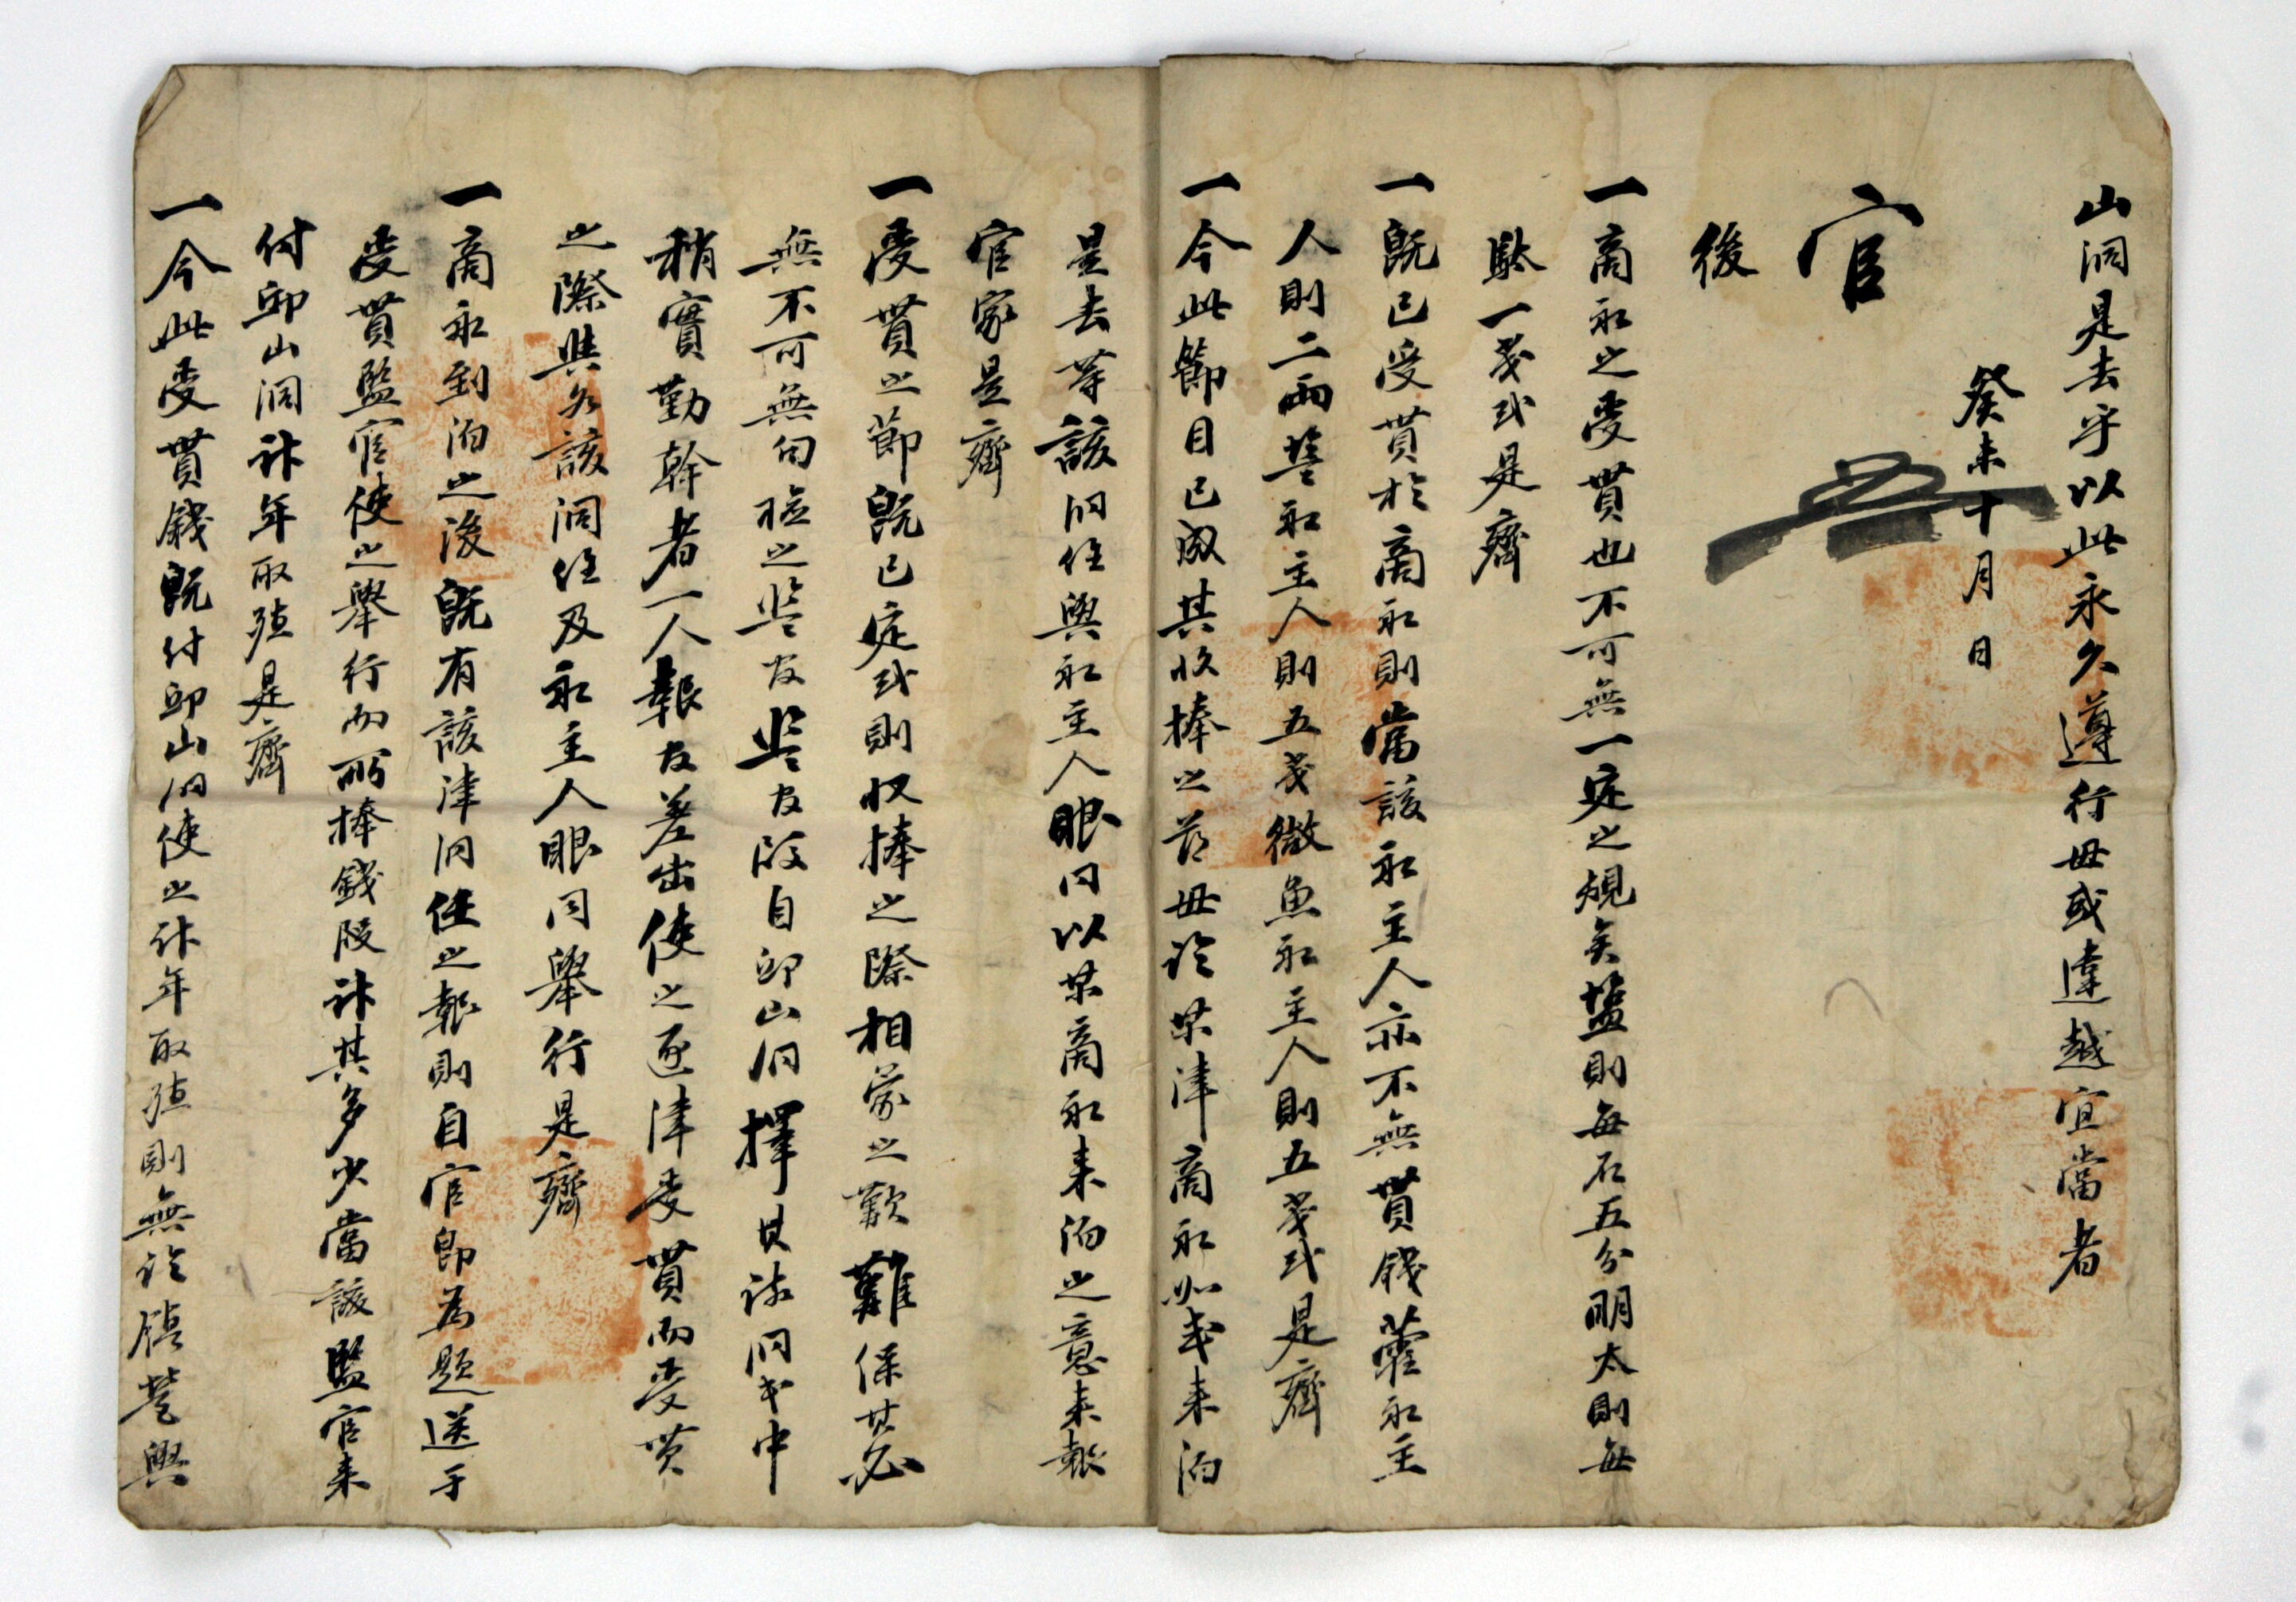 山洞是去乎以此永久遵行毋或違越宜當者
癸未十月 日
官
後
一商船之受貰也不可無一定之規矣鹽則每石五分明太則每
駄一戔式是齊
一旣已受貰於商船則當該船主人亦不無貰錢藿船主
人則二兩鹽船主人則五戔微魚船主人則五戔式是齊
一今此節目已成其收捧之節毋論某津商船如或來泊
是去等該洞任與船主人眼同以某商船來泊之意來報
官家是齊
一受貰之節旣已定式則收捧之際相蒙之歎難保其必
無不可無句檢之監官監官段自邱山洞擇其該洞中
稍實勤幹者一人報官差出使之逐津受貰而受貰
之際與各該洞任及船主人眼同擧行是齊
一商船到泊之後旣有該津洞任之報則自官卽爲題送于
受貰監官使之擧行而所捧錢段計其多少當該監官來
付邱山洞計年取殖是齊
一今此受貰錢旣付邱山洞使之計年取殖則無論鎭營與